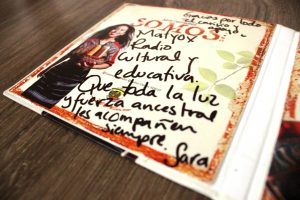 Gracias por todo
el cariño y
SOMOS:
Matyox
Radio
Cultural y
educativa.
Que toda la luz
y fuerza ancestral
les acompañen
siempre. Sara